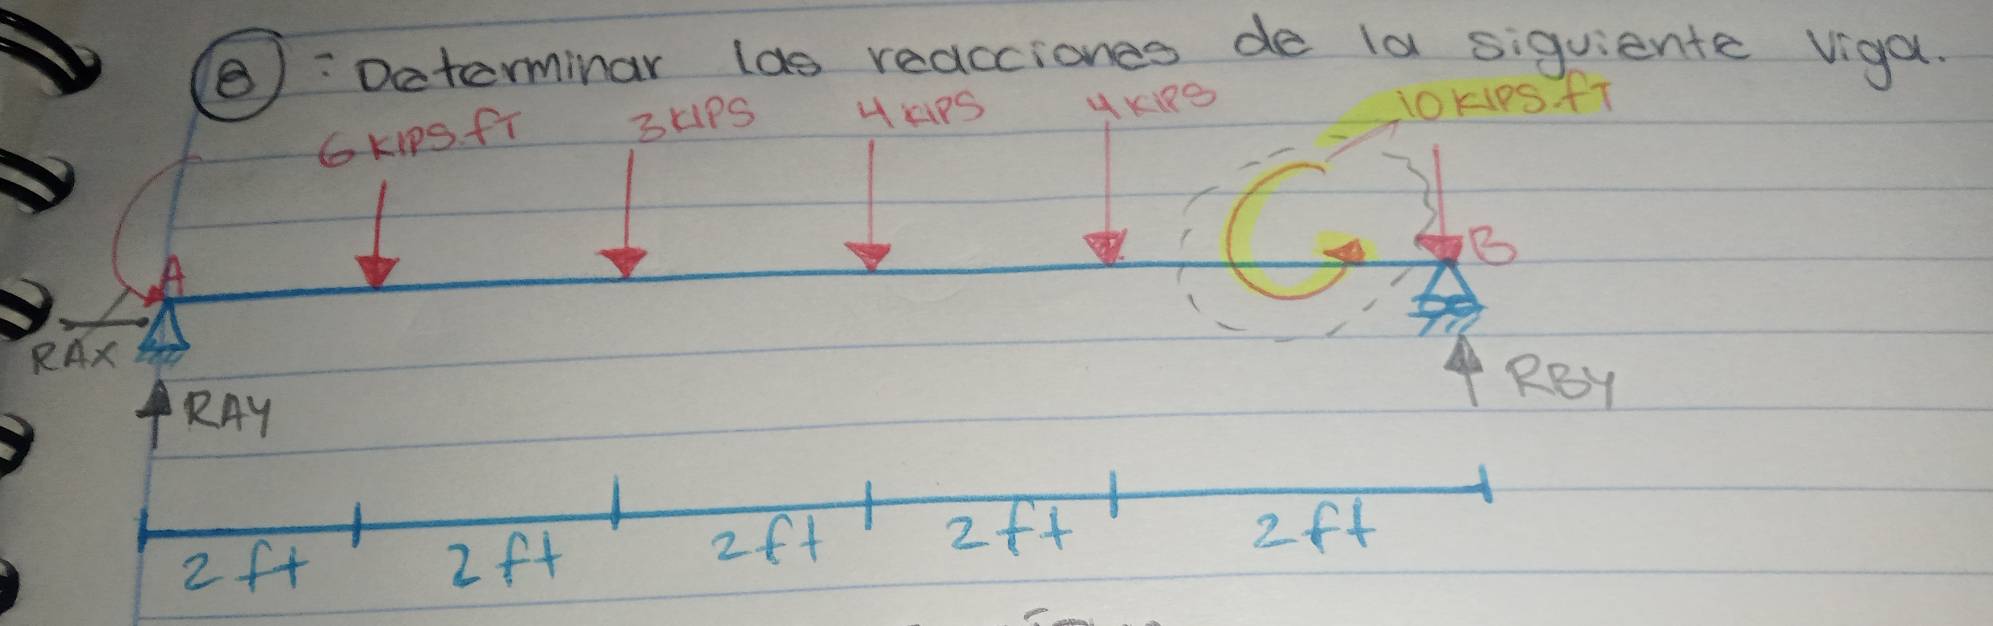 8: Determinar las reacciones de la siguiente viga.
6 KIPS.fT 3 KIPS 4 KIPS 4 KIPS 10 KIPS.fT
A B
RAX RAY RBY
2 ft 2 ft 2 ft 2 ft 2 ft